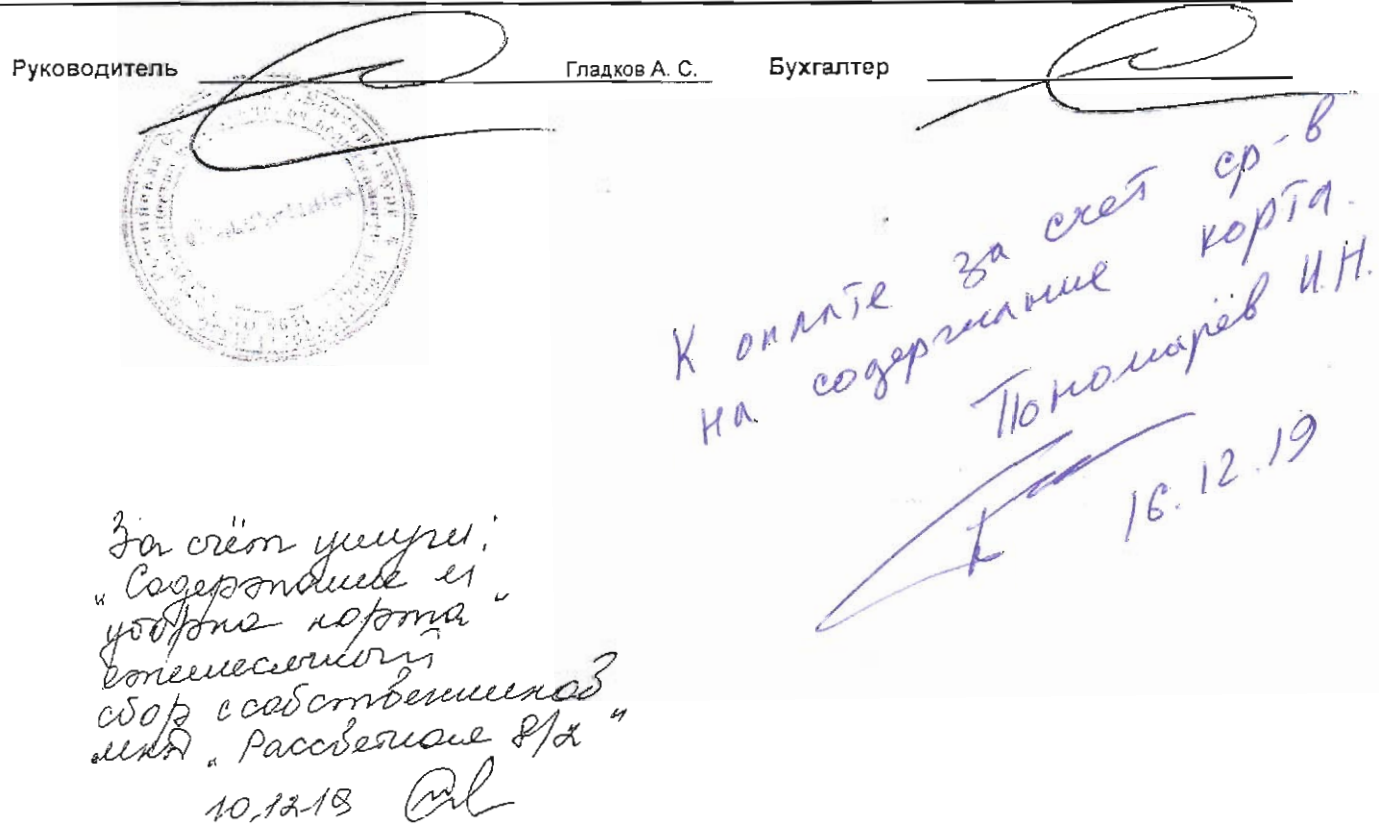 Руководитель Гладков А. С. Бухгалтер
К оплате за счет ср-в
на содержание корта.
Пономарёв И.Н.
16.12.19
За счёт услуги:
"Содержание и
уборка корта"
ежемесячный
сбор с собственников
мкд "Рассветная 8/2"
10.12.19